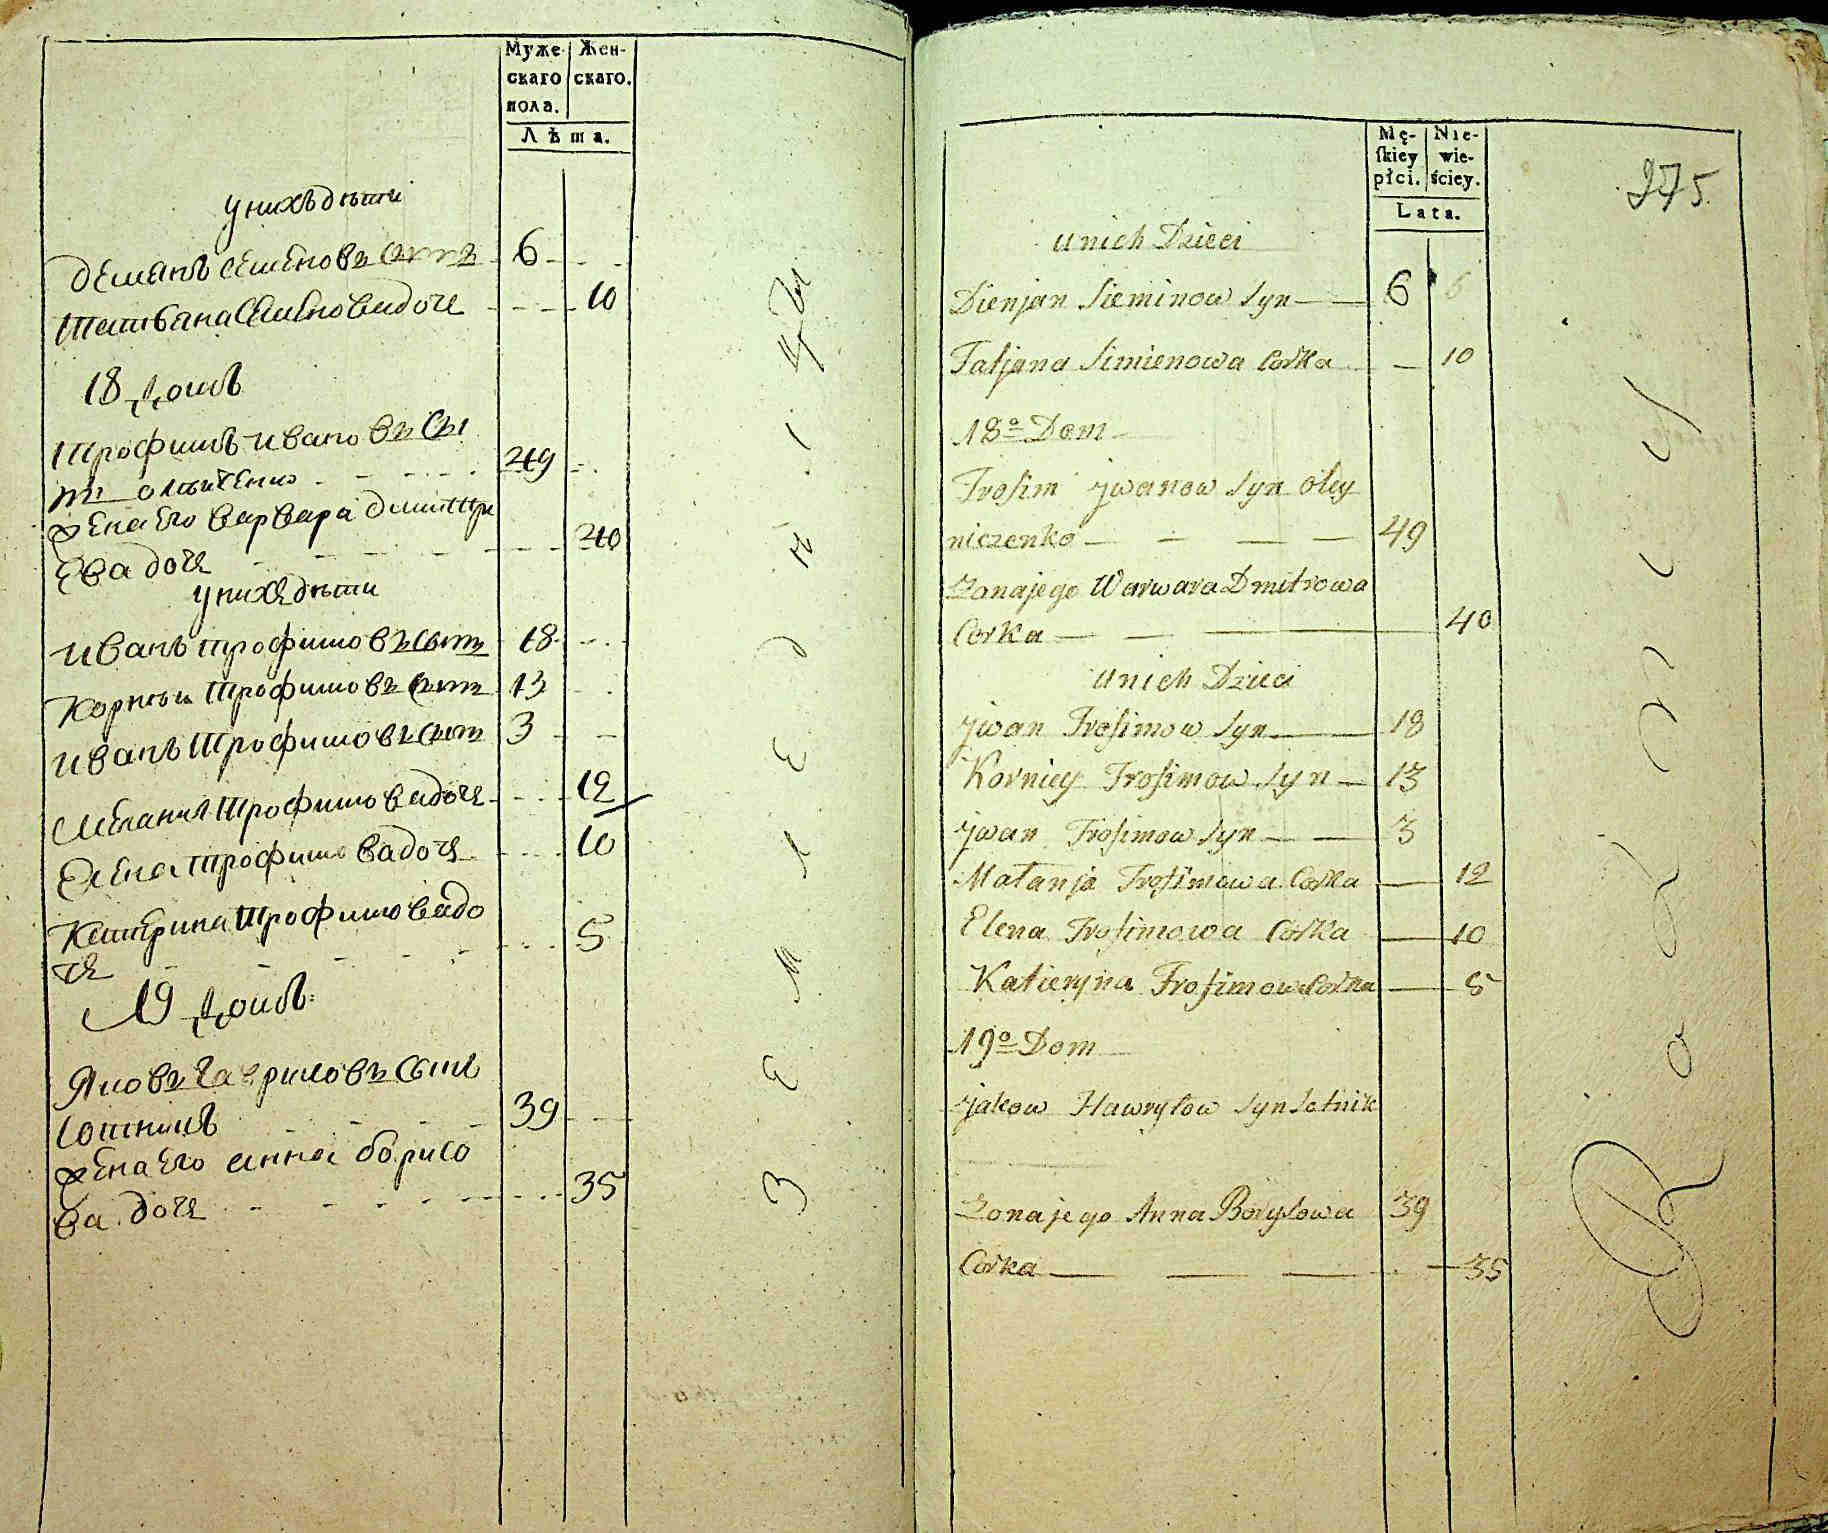 Муже- Жен-
скаго скаго.
пола.
Лѣта.
у нихъ дѣти
Демянъ Семеновъ сынъ 6
Татяна Семенова доче 10
18 домъ
Трофимъ Ивановъ сы
нъ 49
жена его Варвара Дмитри
ева доче 40
у нихъ дѣти
Иванъ Трофимовъ сынъ 18
Корнѣи Трофимовъ сынъ 13
Иванъ Трофимовъ сынъ 3
Мелания Трофимова доче 12
Елена Трофимова доче 10
Катерина Трофимова до
че 5
19 домъ
Яковъ Гавриловъ сынъ
Сотникъ 39
жена его Анна Борисо
ва доче 35
Mę- Nie-
skiey wie-
płci. ściey.
Lata.
275.
unich Dzieci
Dienjan Sieminow Syn 6
Tatjana Simienowa Corka 10
18o Dom
Trofim jwanow Syn oley
niczenko 49
Zonajego Warwara Dmitrowa
Corka 40
unich Dzieci
jwan Trofimow Syn 18
Korniey Trofimow Syn 13
jwan Trofimow Syn 3
Matanja Trofimowa Corka 12
Elena Trofimowa Corka 10
Katieryna Trofimowa Corka 5
19o Dom
jakow Hawryłow Syn Sotnik
Zonajego Anna Borysowa 39
Corka 35